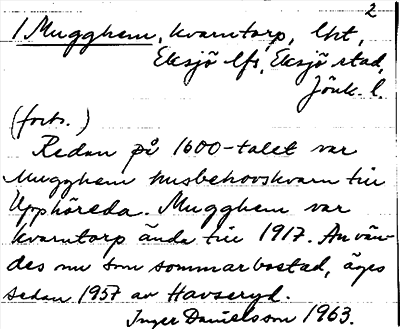 2
/Mugghem, kvarntorp, lht,
Eksjö lfs, Eksjö stad,
Jönk. l.
(forts.)
Redan på 1600-talet var
Mugghem husbehovskvarn till
Upphöreda. Mugghem var
kvarntorp ända till 1917. Använ-
des nu som sommarbostad, äges
sedan 1957 av Havseryd.
Inger Danielsson 1963.